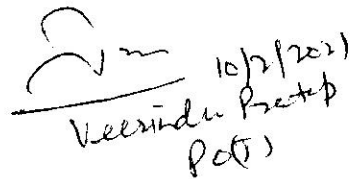 10/2/2021
Veerindra Pratap
PO(T)